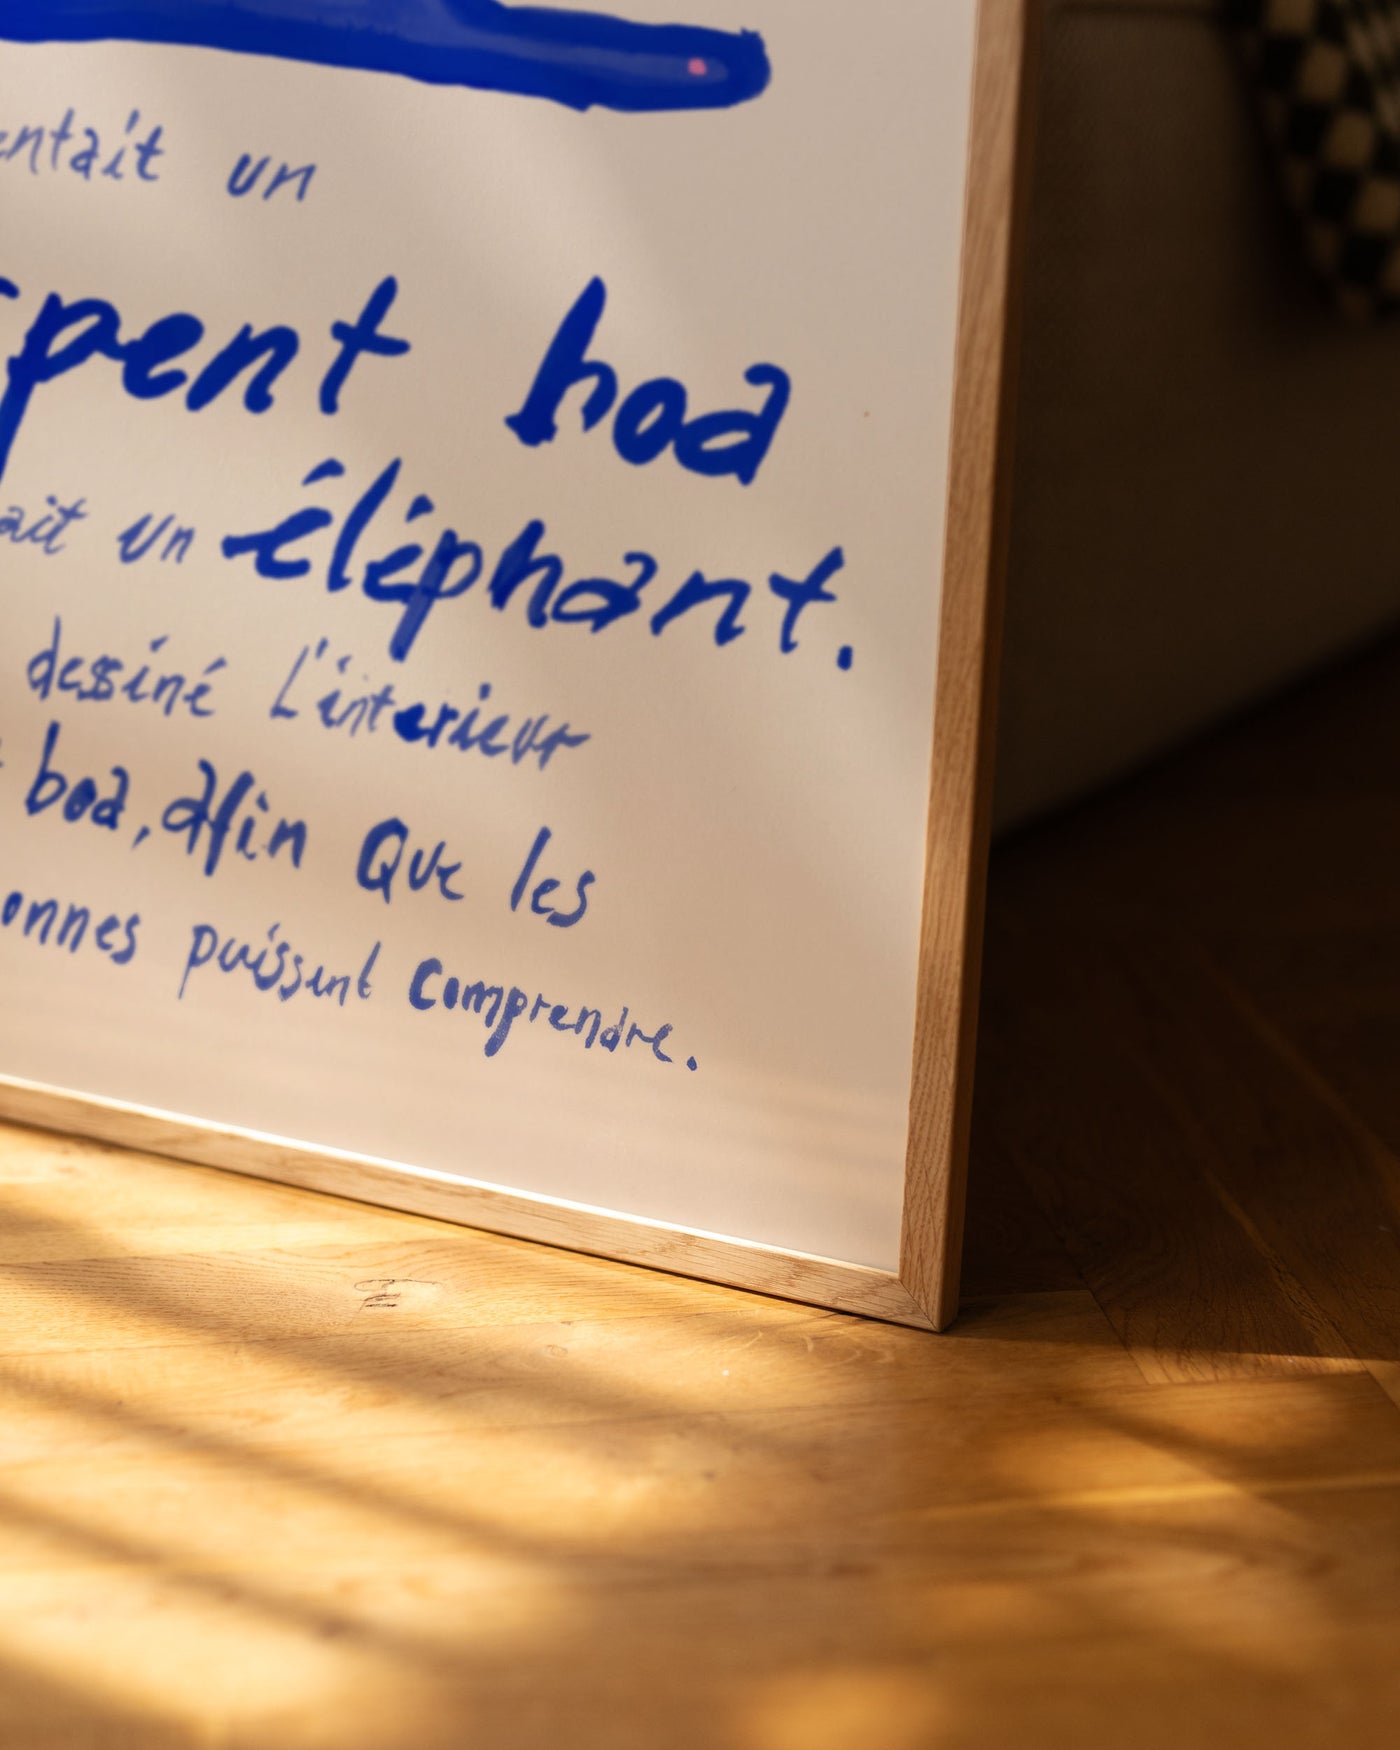 entait un
spent boa
ait un éléphant.
dessiné L'interieur
boa, afin Que les
onnes puissent comprendre.